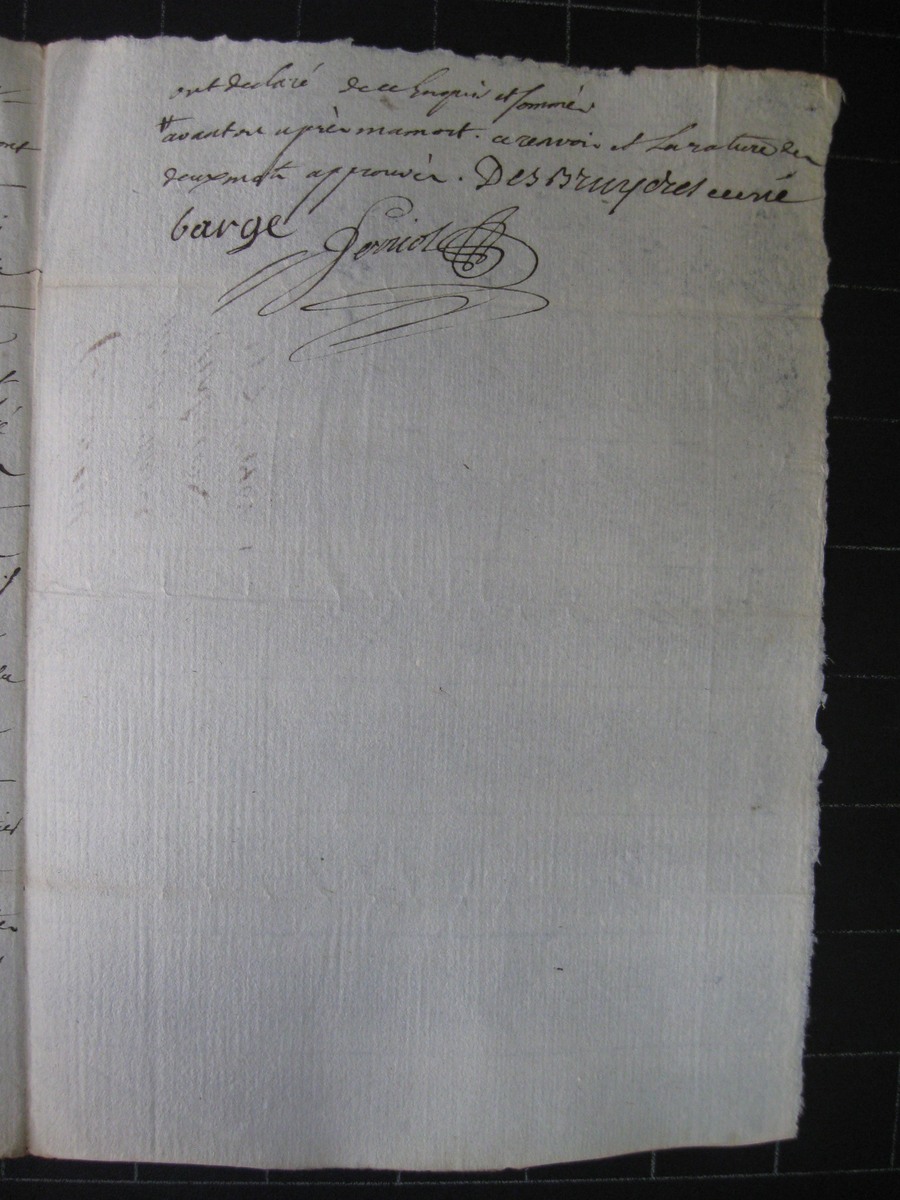 ont declaré de ce Enquis et sommés
# avant ou après ma mort. ce renvoi et la rature de
deux mots approuvés. DesBruyeres curé
barge